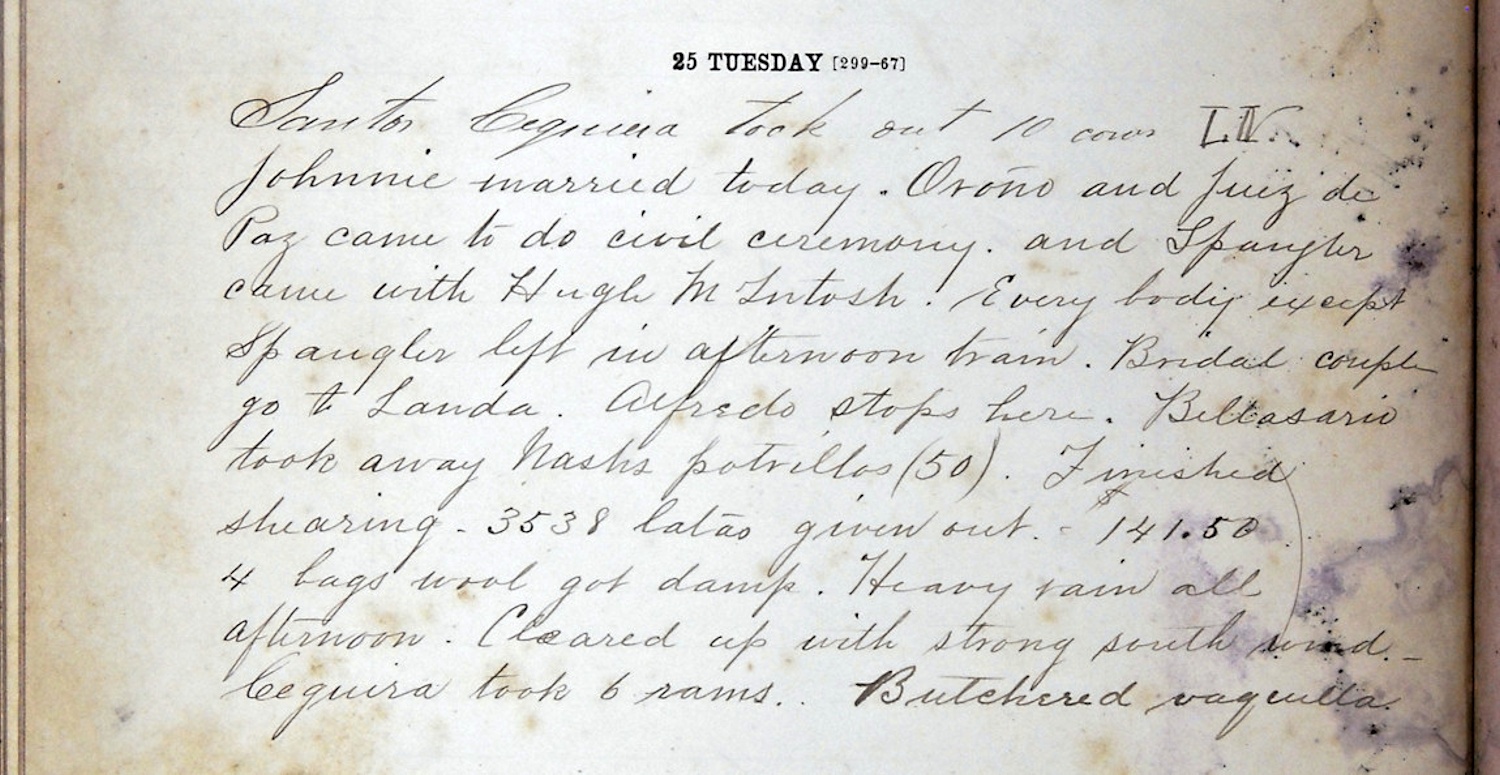 25 TUESDAY [299-67]
Santos Cequiera took out 10 cows
Johnnie married today. Oroño and Juiz de
Paz came to do civil ceremony. and Spangler
came with Hugh McIntosh. Every body except
Spangler left in afternoon train. Bridal couple
go to Landa. Alfredo stops here. Beltasario
took away Nashs potrillos (50). Finished
shearing - 3538 latas given out. - $141.50
4 bags wool got damp. Heavy rain all
afternoon. Cleared up with strong south wind. -
Cequira took 6 rams. . Butchered vaquilla.